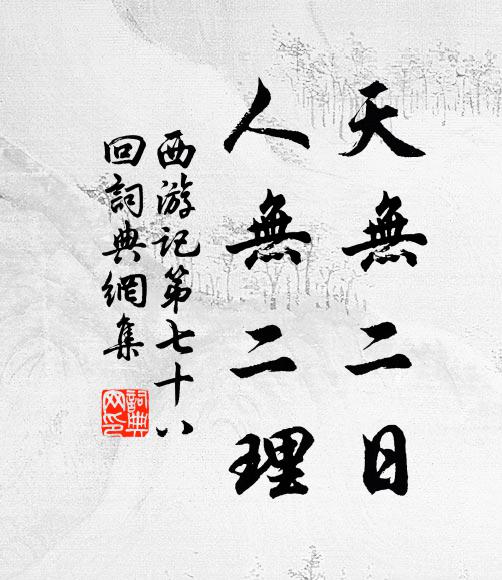 天無二日
人無二理
西游记第七十八
回詞典網集
詞典
网印